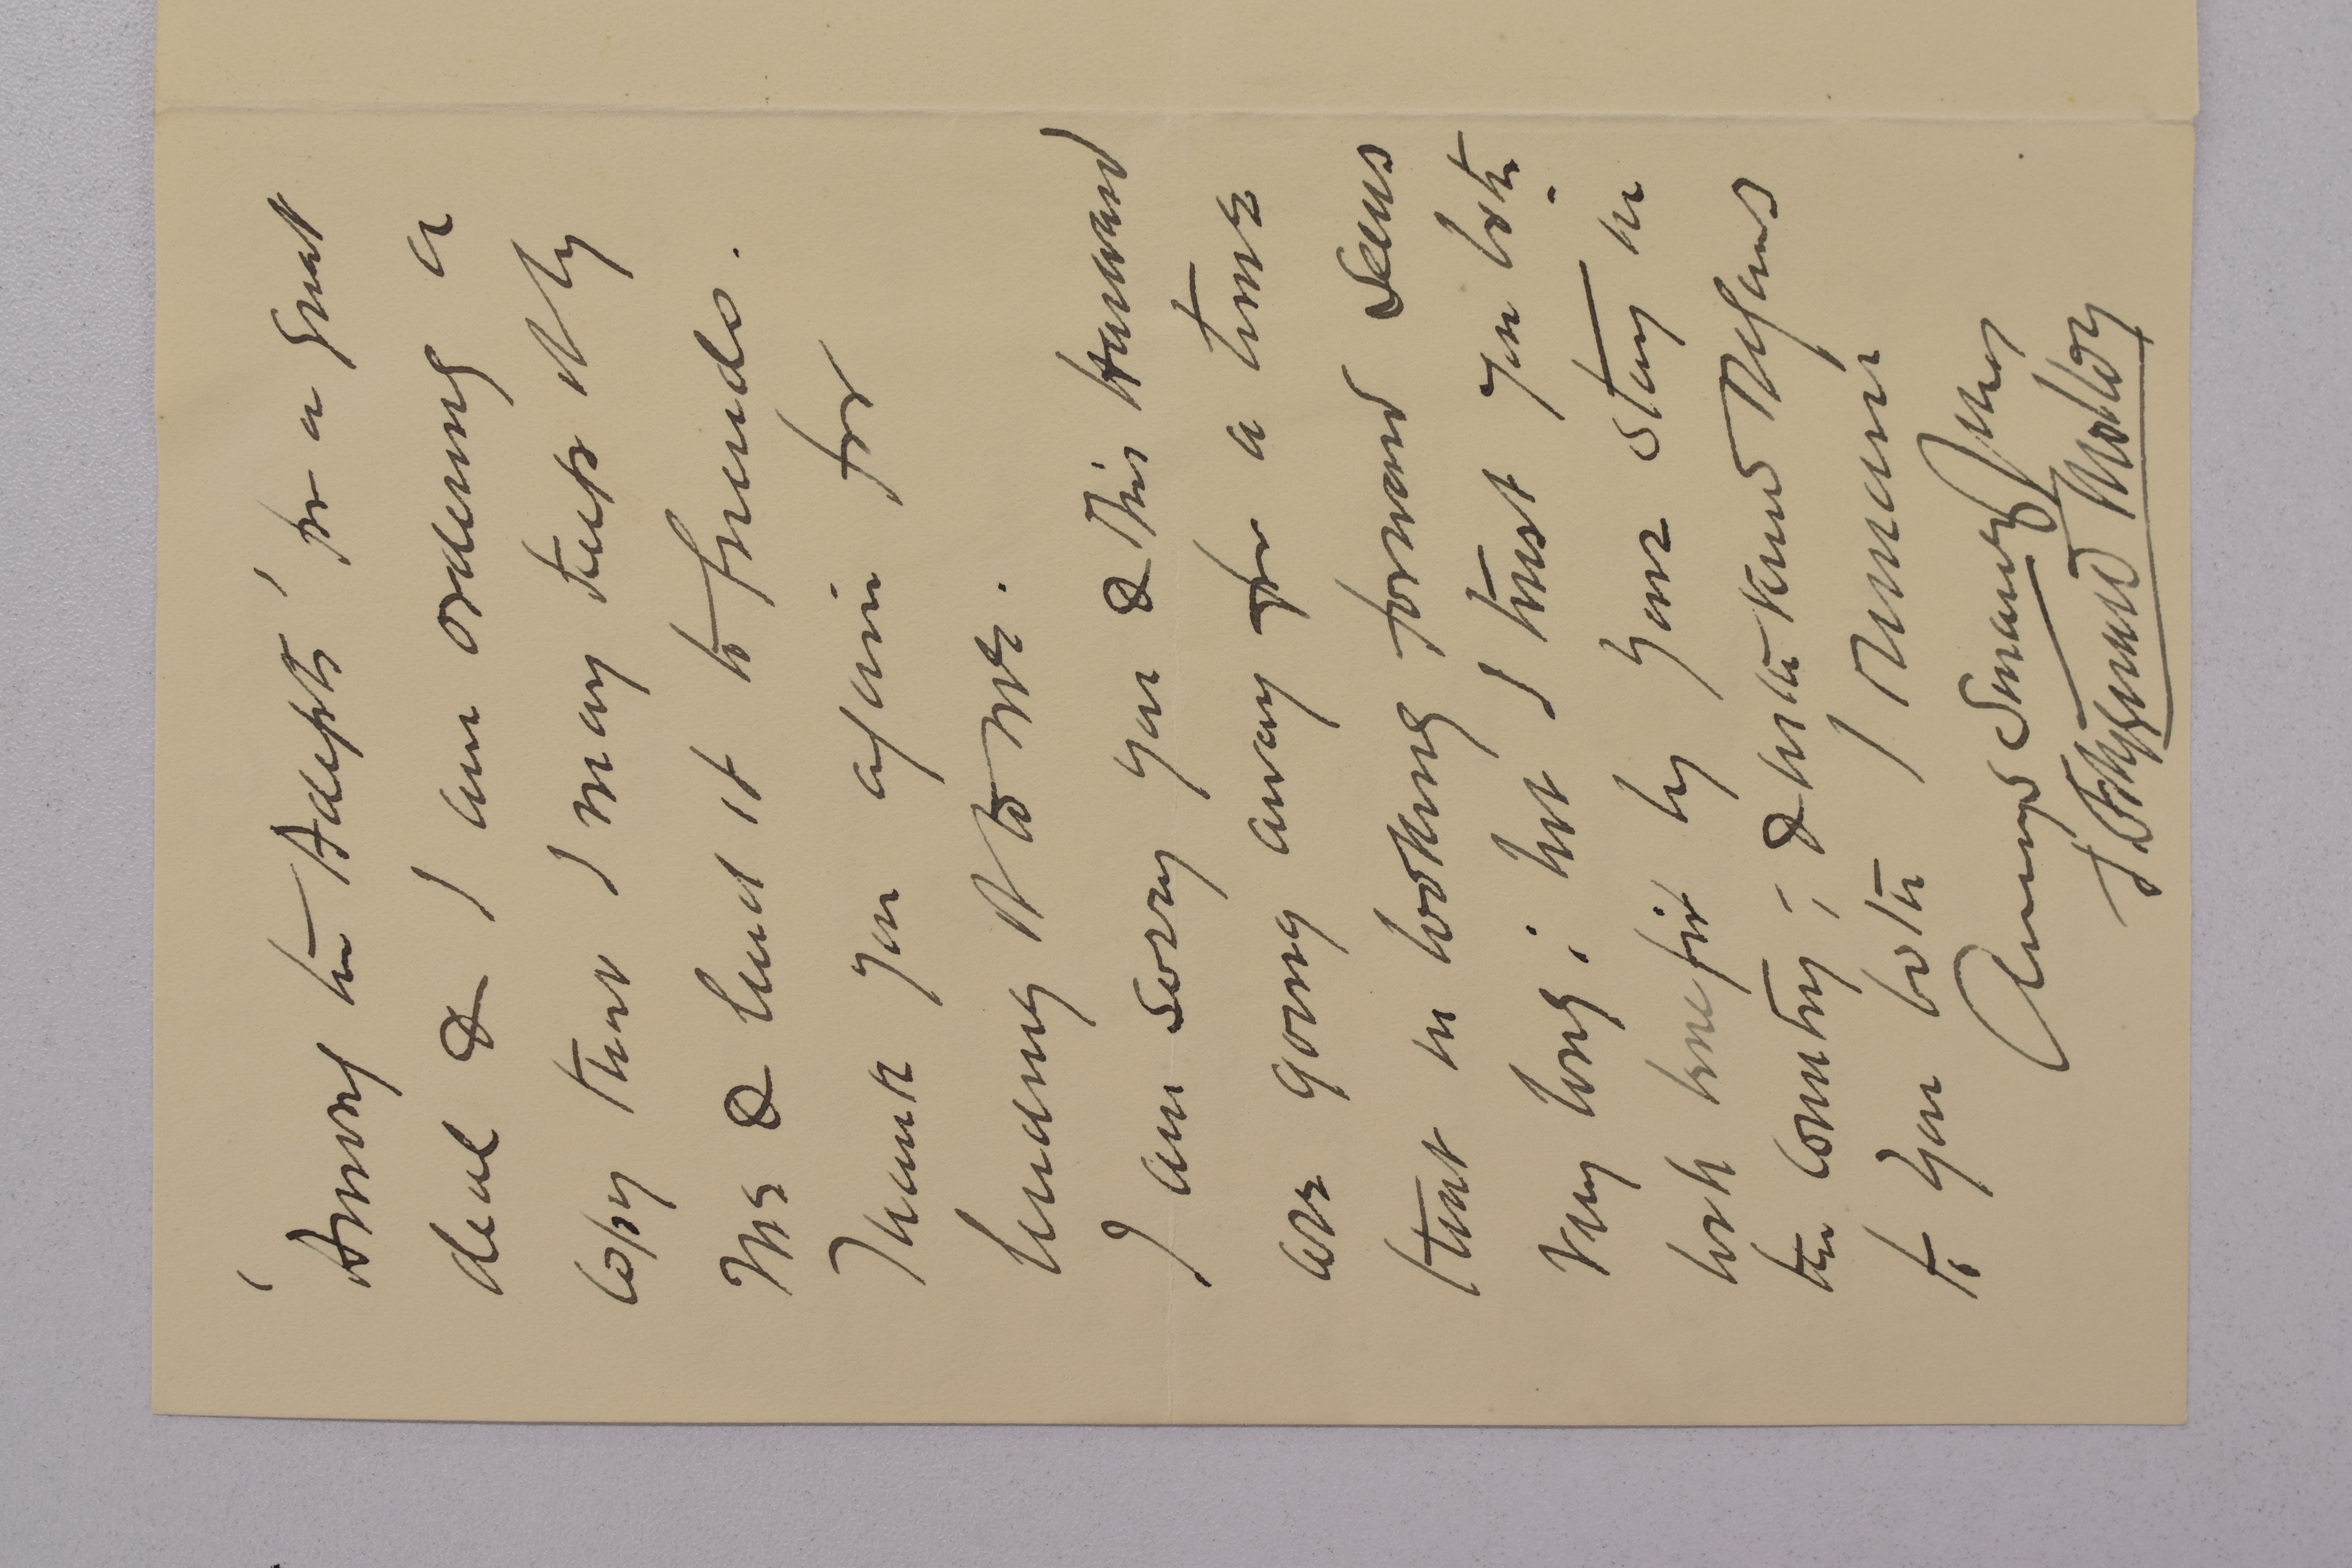 'Among the Adepts' for a great
deal & I am ordering a
copy that I may keep it by
me & lend it to friends.
Thank you again for
lending it to me.
I am sorry you & Mr Hunard
are going away for a time
that in looking forward seems
very long; but I trust you both
will benefit by your stay in
the country; & with kind regards
to you both I remain
Always Sincerely Yours
J Molloy